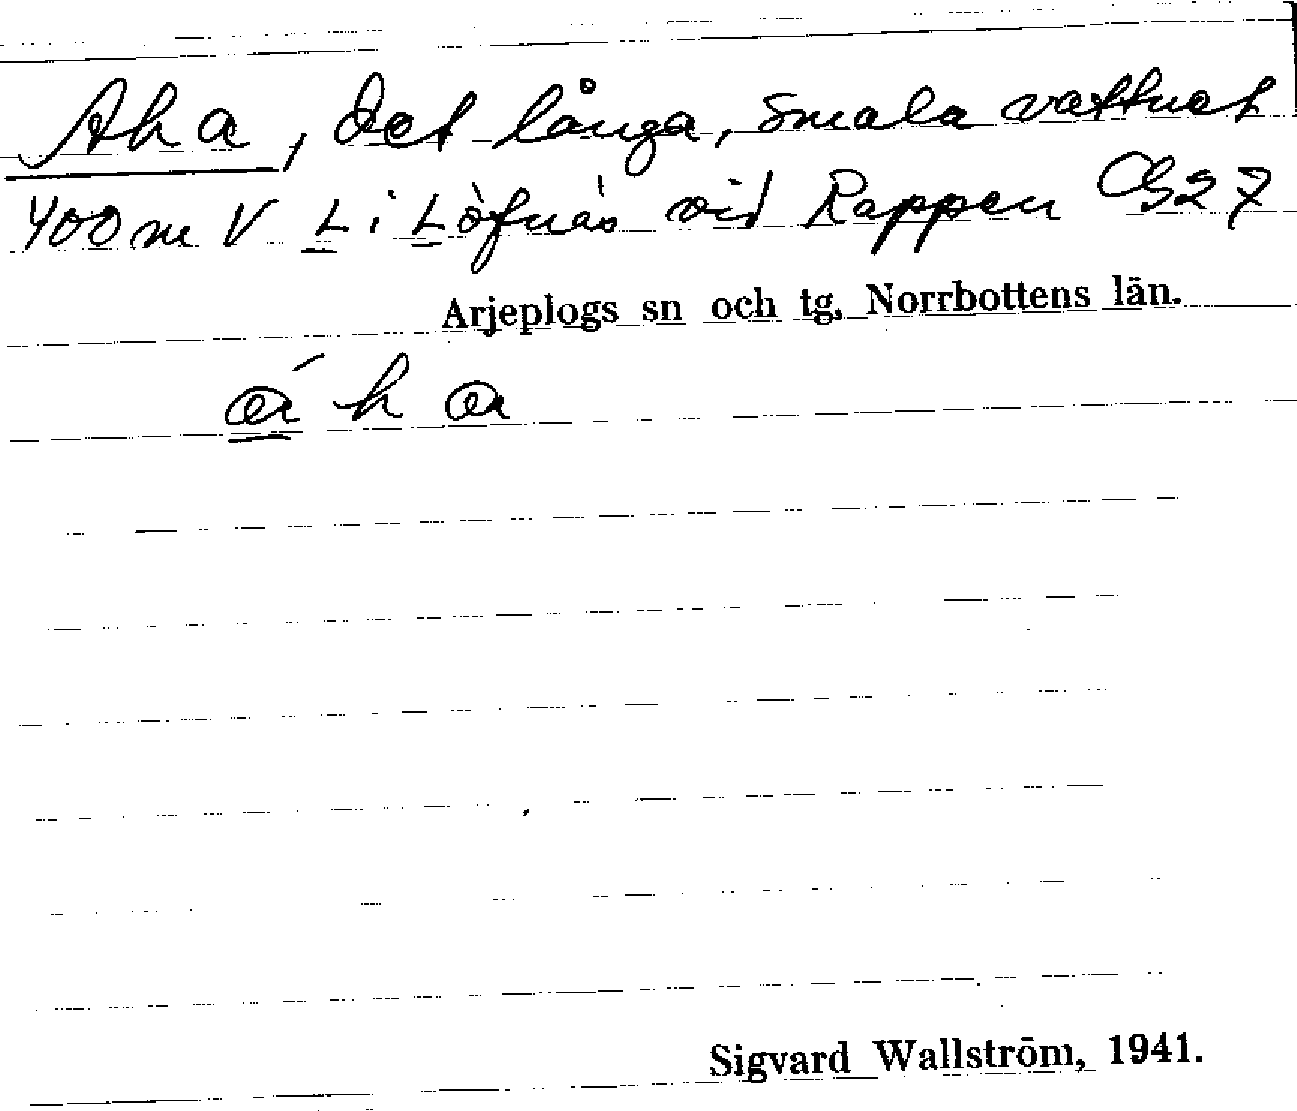 Aha, det långa, smala vattnet
400 m V L i Löfnäs vid Rappen CG27
Arjeplogs sn och tg, Norrbottens län.
á h a
Sigvard Wallström, 1941.